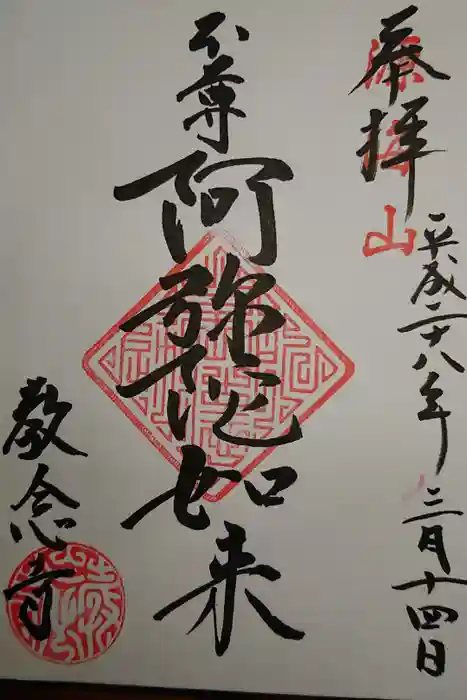 奉拝
山
平成二十八年 三月十四日
本尊
阿弥陀如来
教念寺